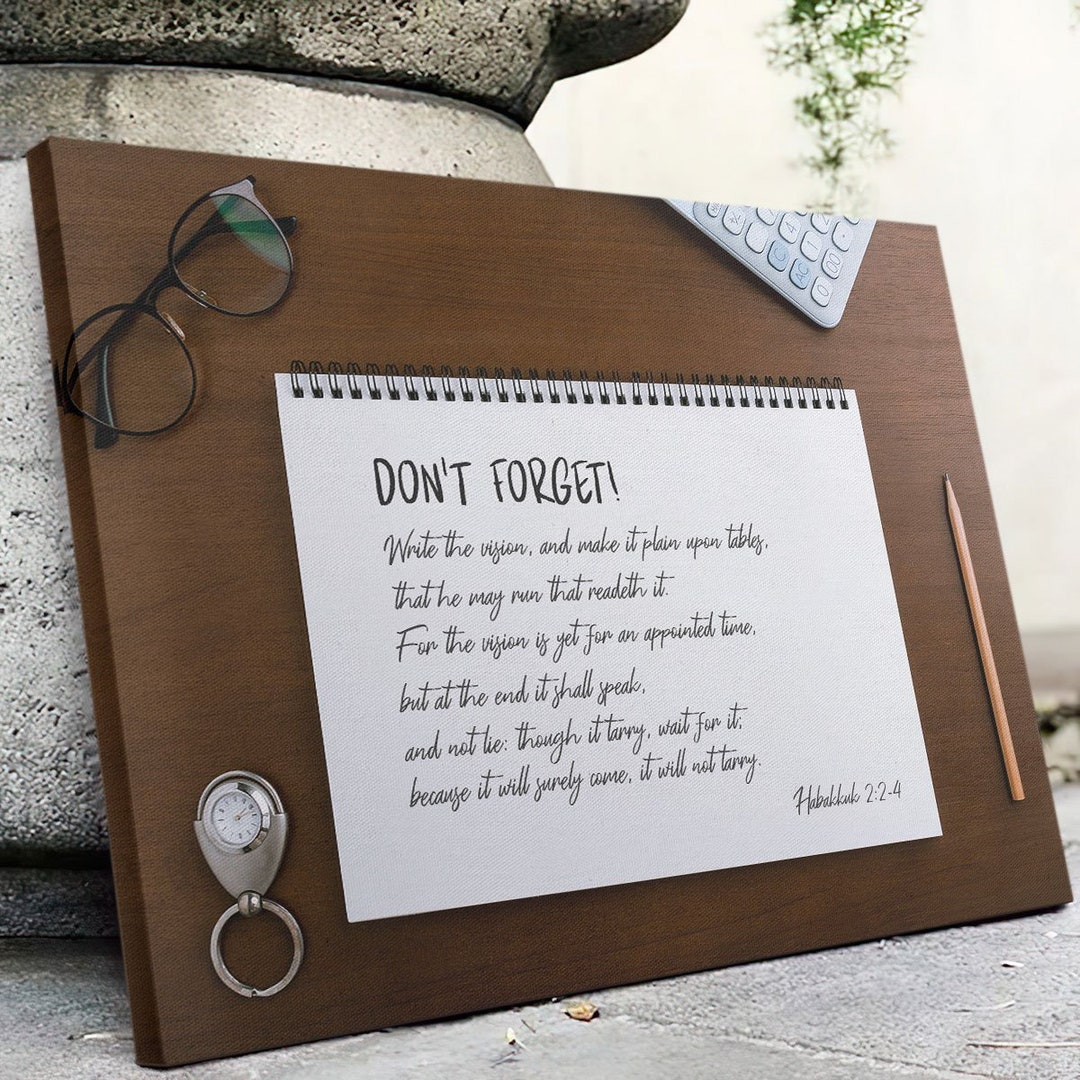 4 1 00
C AC 0
DON'T FORGET!
Write the vision, and make it plain upon tables,
that he may run that readeth it.
For the vision is yet for an appointed time,
but at the end it shall speak,
and not lie: though it tarry, wait for it;
because it will surely come, it will not tarry.
Habakkuk 2:2-4